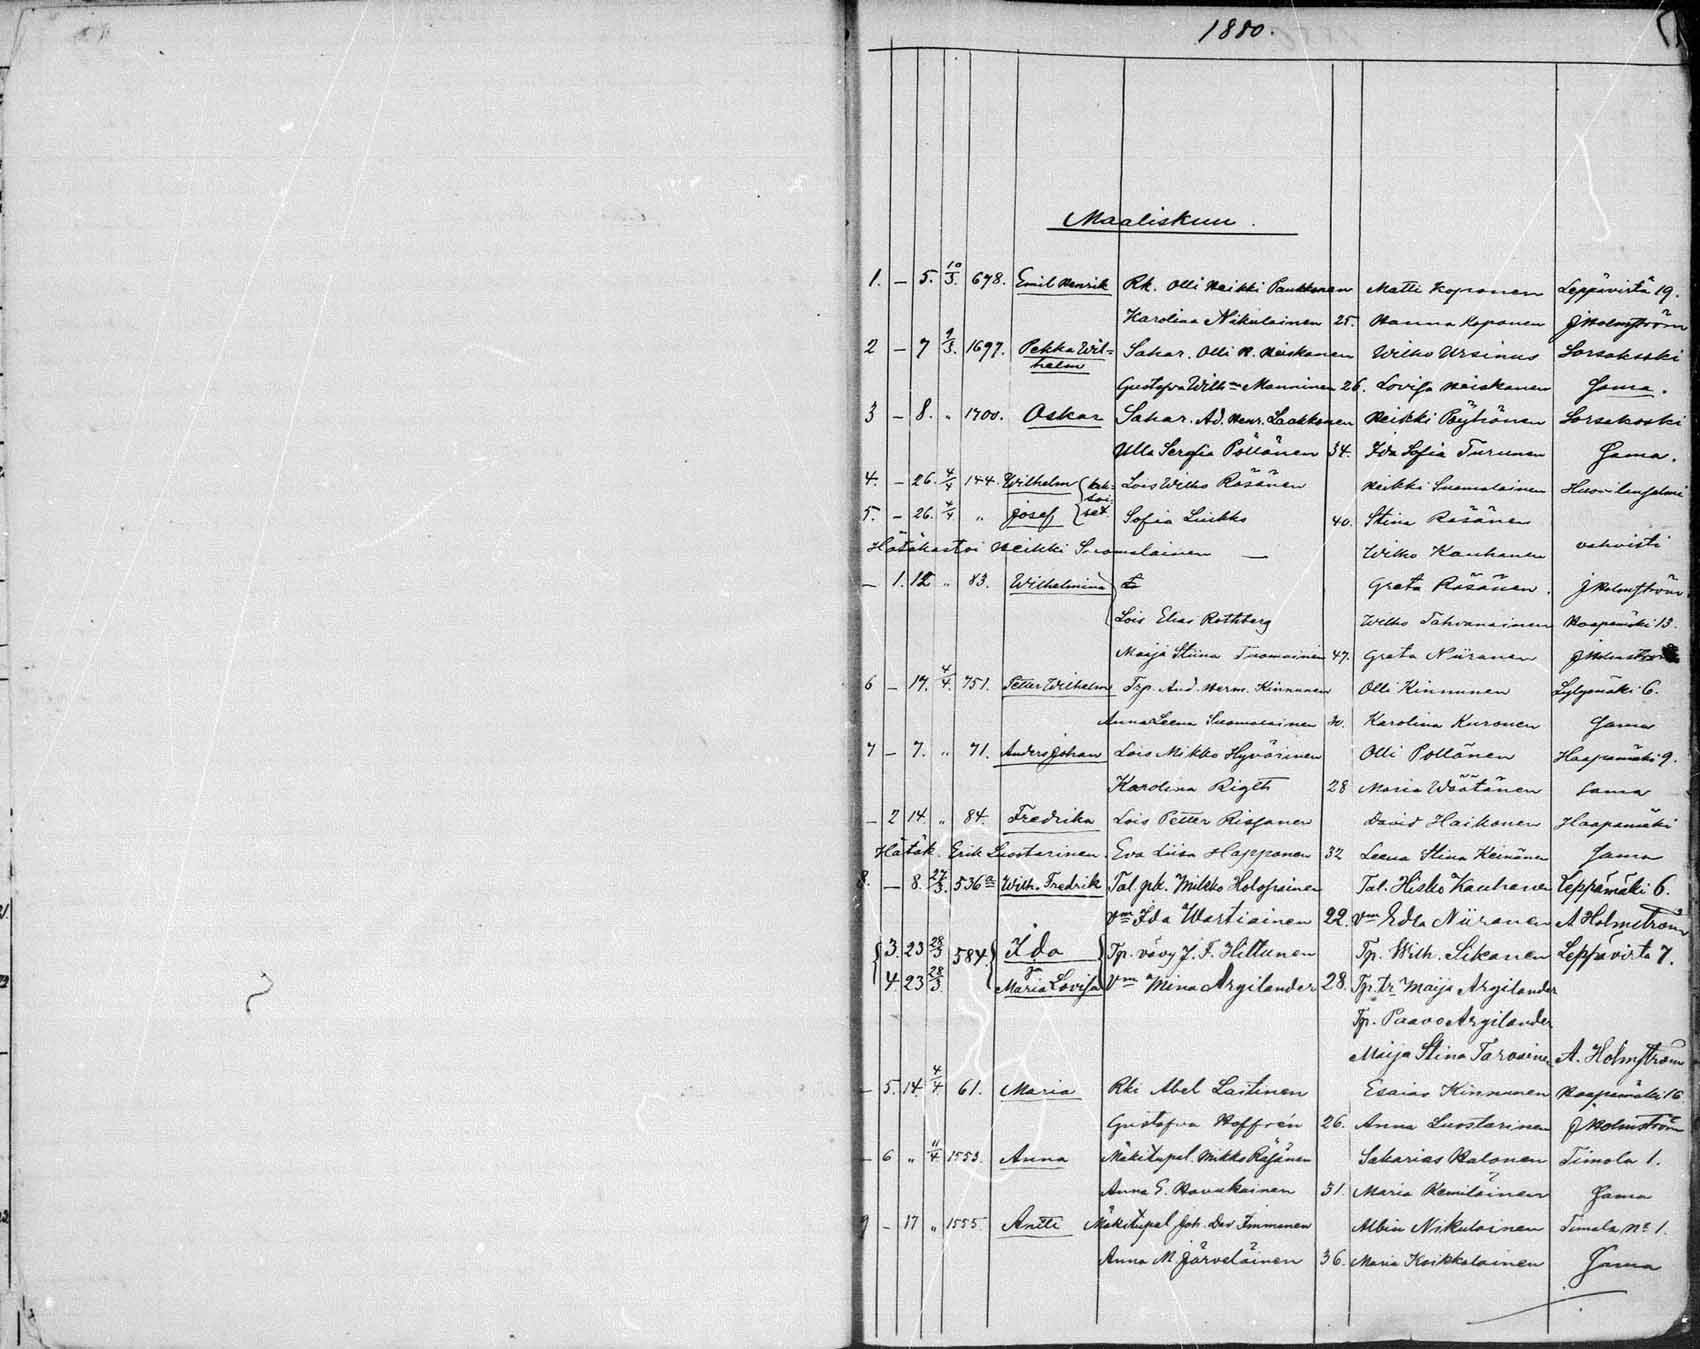 1880.
Maaliskuu.
1. – 5. 10/3. 678. Emil Henrik Rk. Olli Heikki Paukkonen Matti Koponen Leppävirta 19.
Karolina Nikulainen 25. Hanna Koponen J Holmström
2 – 7 9/3. 1697. Pekka Wil= Sahar. Olli H. Heiskanen Wilho Ursinus Sorsakoski
helm
Gustafva Wilh:na Manninen 26. Lovisa Heiskanen Sama.
3 – 8. „ 1700. Oskar Sahar. Ad. Henr. Laakkonen Heikki Pöyhönen Sorsakoski
Ulla Serafia Pöllänen 34. Ida Sofia Turunen Sama.
4. – 26. 4/4 144. Wilhelm Lois Wilho Räsänen Heikki Suomalainen
kak-
soi-
5. – 26. 4/4 „ Josef set. Sofia Liukko 40. Stina Räsänen
Hätäkastoi Heikki Suomalainen — Wilho Kauhanen vahvisti
– 1. 12 „ 83. Wilhelmina Greta Räsänen. J Holmström
Lois Elias Rothberg Wilho Tahvanainen Haapamäki 13.
Maija Stiina Tuomainen 47. Greta Niiranen J Holmström
6 – 17. 4/4. 751. Petter Wilhelm Trp. And. Herm. Kinnunen Olli Kinnunen Lylymäki 6.
Anna Leena Suomalainen 30. Karolina Kuronen Sama
7 – 7. „ 71. Anders Johan Lois Mikko Hyvärinen Olli Pollänen Haapamäki 9.
Karolina Rigth 28 Maria Wäätänen Sama
– 2 14. „ 84. Fredrika Lois Petter Rissanen David Haikonen Haapamäki
Hätäk. Erik Luostarinen. Eva Liisa Happonen 32 Leena Stina Keinänen Sama
8. – 8. 27/3. 536 a Wilh. Fredrik Tal. pk. Mikko Holopainen Tal. Hisko Kauhanen Leppämäki 6.
Vm Ida Wartiainen 22. Vm Edla Niiranen A Holmström
3. 23 28/3 584. Ida Tp. vävy J. F. Hiltunen Tp. Wilh. Sikanen Leppävirta 7.
4. 23 28/3. Maria Lovisa Vm Mina Argilander 28. Tp. tr Maija Argilander
Tp. Paavo Argilander
Maija Stina Tarvainen A. Holmström
– 5. 14. 4/4. 61. Maria Rki Abel Laitinen Esaias Kinnunen Haapamäki 16
Gustafva Hoffrén 26. Anna Luostarinen J Holmström
– 6 „ 11/4 1553. Anna Mäkitupal. Mikko Räsänen Sakarias Halonen Timola 1.
Anna E. Havukainen 31. Maria Hemiläinen Sama
9 – 17 „ 1555. Antti Mäkitupal. Joh. Dav Immonen Albin Nikulainen Timola No 1.
Anna M Järveläinen 36. Maria Koikkalainen Sama